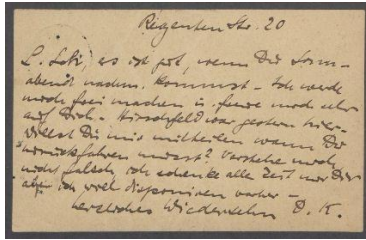 Regenten Str. 20
L. Loki, es ist gut, wenn Du Sonn-
abend nachm. kommst - Ich werde
mich frei machen u. freue mich sehr
auf Dich - Hirschfeld war gestern hier -
willst Du mir mittheilen wann Du
zurückfahren musst? Verstehe mich
nicht falsch, ich schenke alle Zeit nur Dir
aber ich will disponiren vorher -
herzliches Wiedersehn D. K.